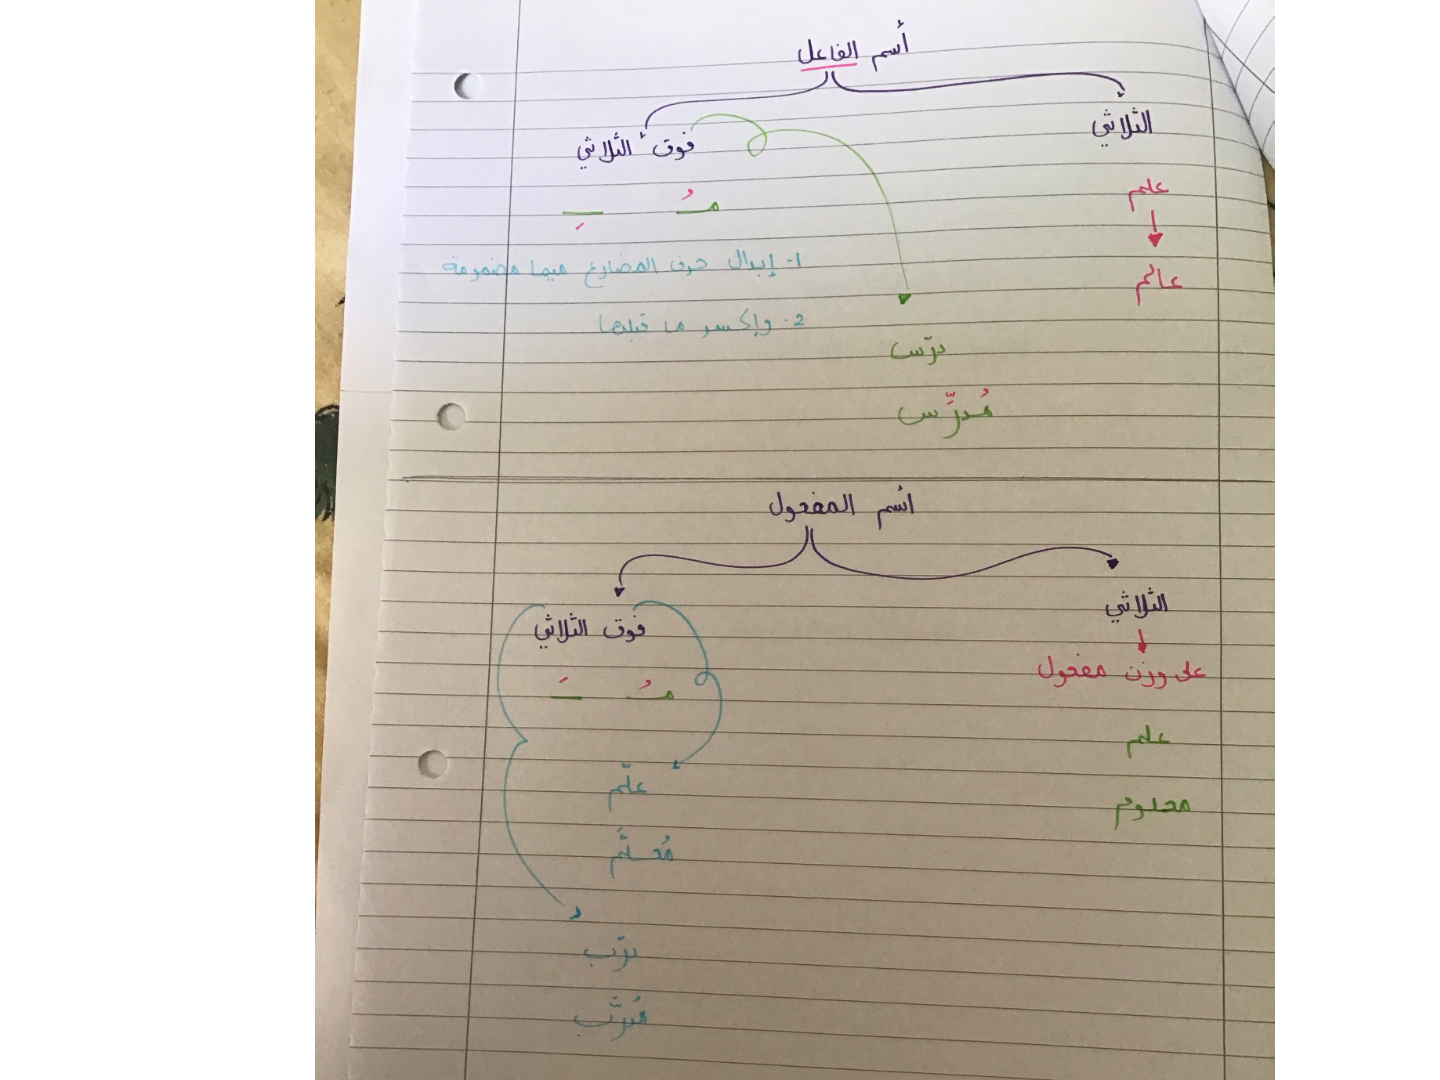 أسم الفاعل
الثلاثي
فوق الثلاثي
علم
مُـ ــِـ
عالم
1- إبدال حرف المضارع ميما مضمومة
2- وإكسر ما قبلها
درّس
مُدرِّس
اسم المفعول
الثلاثي
فوق الثلاثي
على وزن مفعول
مُـ ــَـ
علم
علّم
معلوم
مُعلَّم
درّب
مُدرَّب